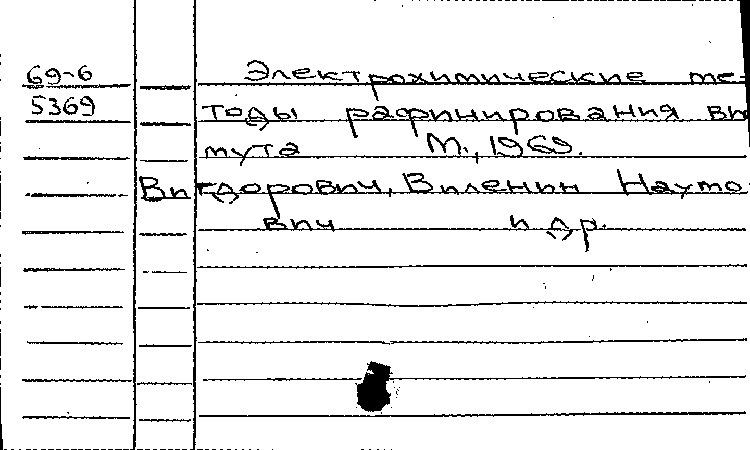 69-6 Электрохимические ме-
5369 тоды рафинирования вис
мута М., 1969.
Вигдорович, Виленин Наумо
вич и др.